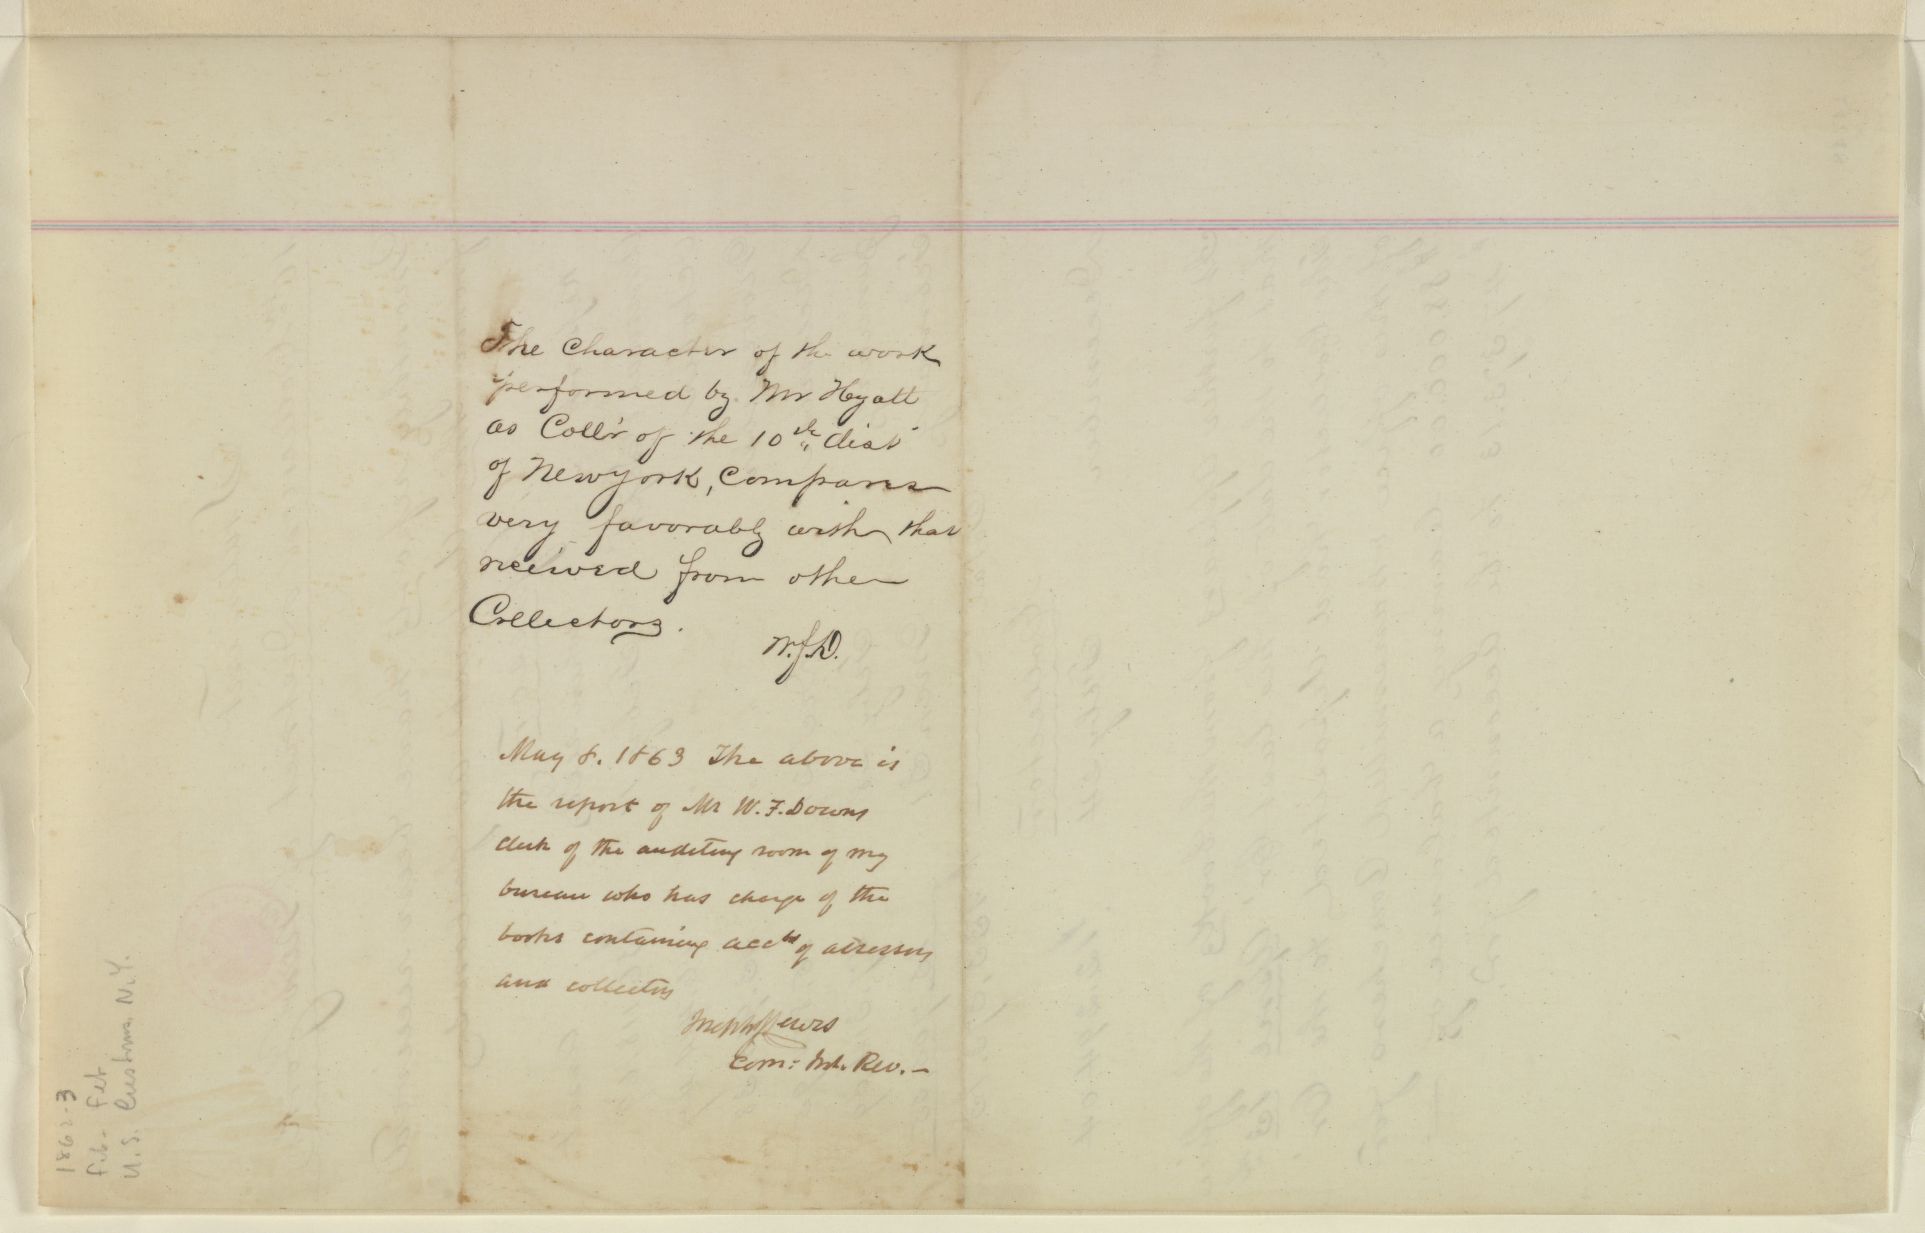 The Character of the work
performed by Mr Hyatt
as Coll'r of the 10th dist
of New York, Compares
very favorably with that
received from other
Collectors.
W.F.D.
May 8. 1863 The above is
the report of Mr W. F. Downs
clerk of the auditing room of my
bureau who has charge of the
books containing accts of assessors
and collectors
Joseph J Lewis
Com: Int. Rev. -
1862-3
Feb - Feb
U.S. Customs, N.Y.